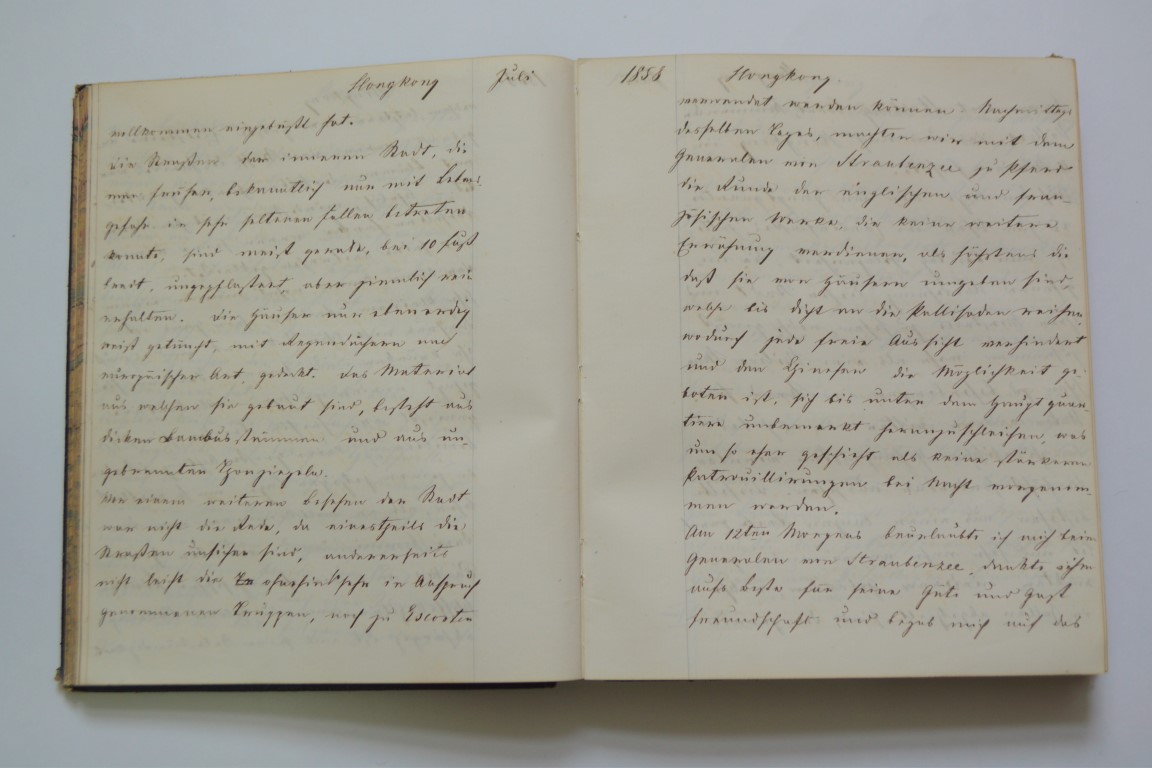 Hongkong Juli
vollkommen eingebüßt hat.
Die Straßen der inneren Stadt, die
man früher, bekanntlich nur mit Lebens
gefahr in sehr seltenen Fällen betreten
konnte, sind meist gerade, bei 10 Fuß
breit, ungepflastert, aber ziemlich rein
erhalten. Die Häuser nur ebenerdig
weiß getüncht, mit Regendächern nach
europäischer Art, gedeckt. Das Material
aus welchen sie gebaut sind, besteht aus
dicken Bambusstämmen und aus un-
gebrannten Thonziegeln.
Von einem weiteren Besehen der Stadt
war nicht die Rede, da einestheils die
Straßen unsicher sind, anderenseits
nicht leicht die sehr in Anspruch
genommenen Truppen, noch zu Escorten
1858 Hongkong.
verwendet werden können. Nachmittags
desselben Tages, machten wir mit dem
Generalen von Straubenzee zu Pferd
die Runde der englischen und fran-
zösischen Werke, die keine weitere
Erwähnung verdienen, als höchstens die
daß sie von Häusern umgeben sind,
welche bis dicht an die Pallisaden reichen,
wodurch jede freie Aussicht verhindert
und den Chinesen die Möglichkeit ge-
boten ist, sich bis unter dem Hauptquar-
tiere unbemerkt heranzuschleichen, was
um so eher geschieht als keine stärkeren
Patrouillirungen bei Nacht vorgenom-
men werden.
Am 12ten Morgens beurlaubte ich mich beim
Generalen von Straubenzee, dankte ihm
aufs beste für seine Güte und Gast
freundschaft und begab mich auf das